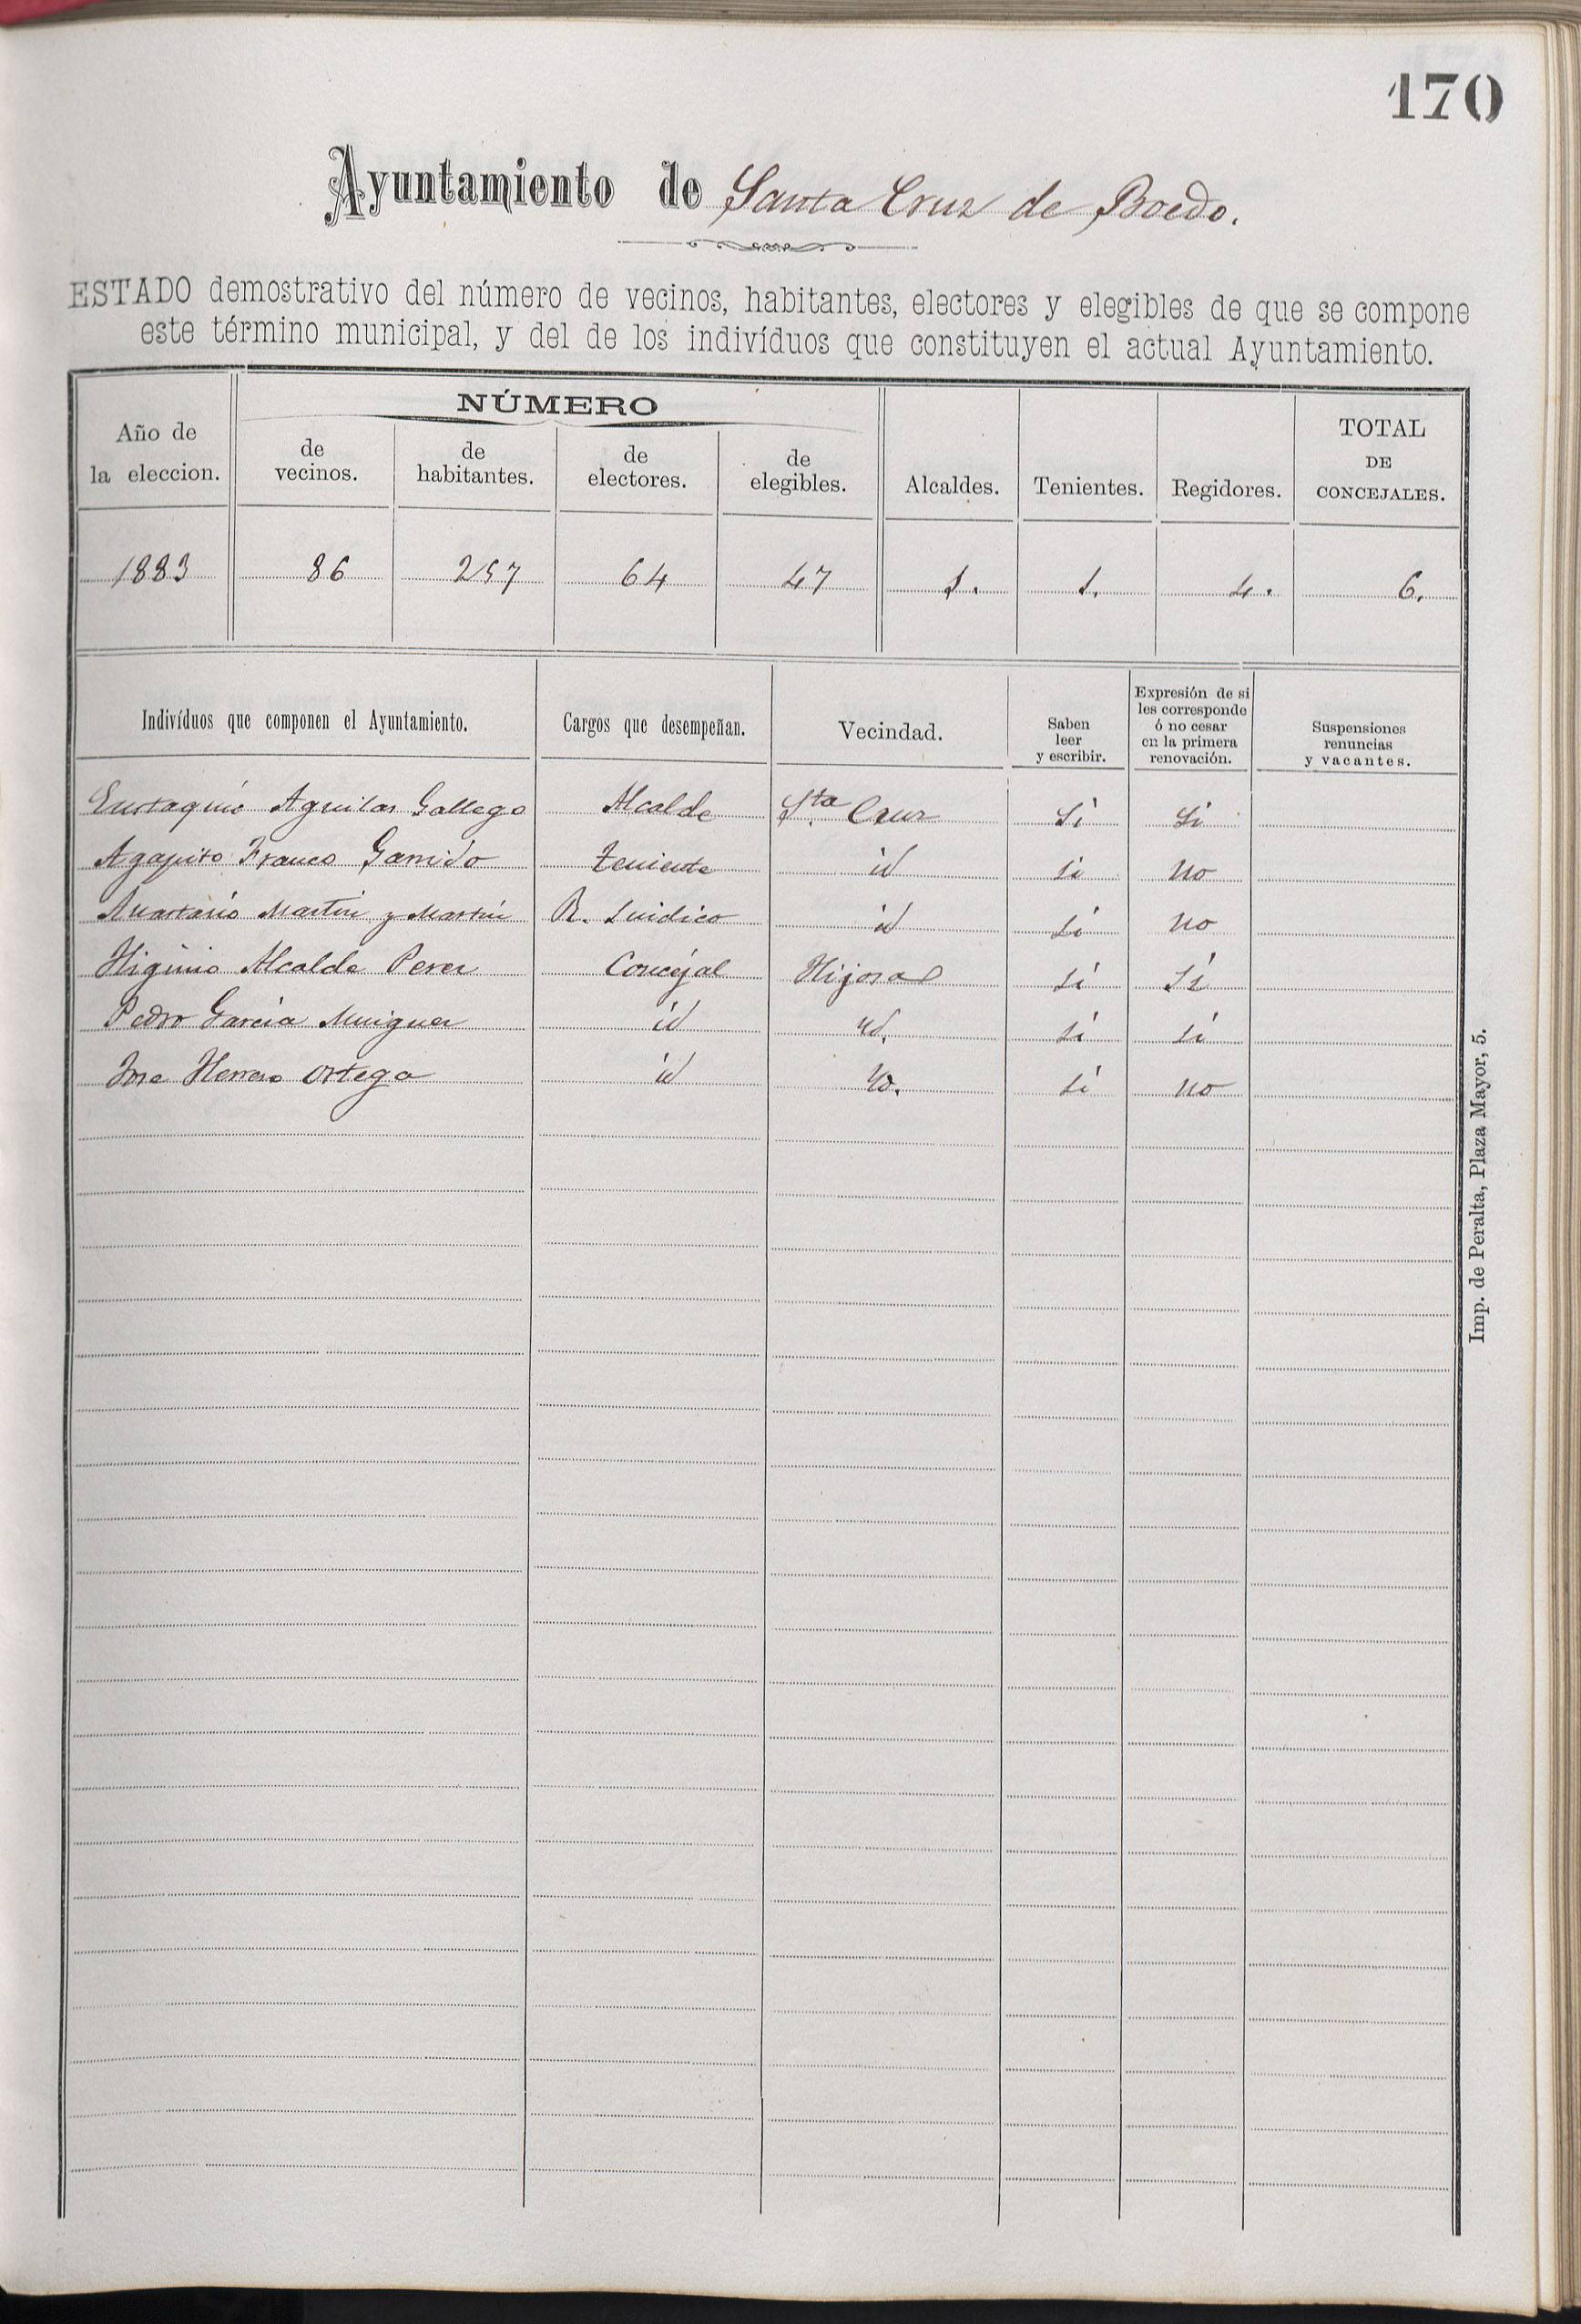 170
Ayuntamiento de Santa Cruz de Boedo.
ESTADO demostrativo del número de vecinos, habitantes, electores y elegibles de que se compone
este término municipal, y del de los indivíduos que constituyen el actual Ayuntamiento.
Año de la eleccion. NÚMERO de vecinos. de habitantes. de electores. de elegibles. Alcaldes. Tenientes. Regidores. TOTAL DE CONCEJALES.
1883 86 257 64 47 1. 1. 4. 6.
Indivíduos que componen el Ayuntamiento. Cargos que desempeñan. Vecindad. Saben leer y escribir. Expresión de si les corresponde ó no cesar en la primera renovación. Suspensiones renuncias y vacantes.
Eustaquio Aguilar Gallego Alcalde Sta Cruz Si Si
Agapito Franco Garrido teniente id si no
Anastasio Martin y Martin R. Sindico id si no
Higinio Alcalde Perez Concejal Hijosa si Si
Pedro Garcia id id. si si
Jose Herrero Ortega id id. si no
Imp. de Peralta, Plaza Mayor, 5.